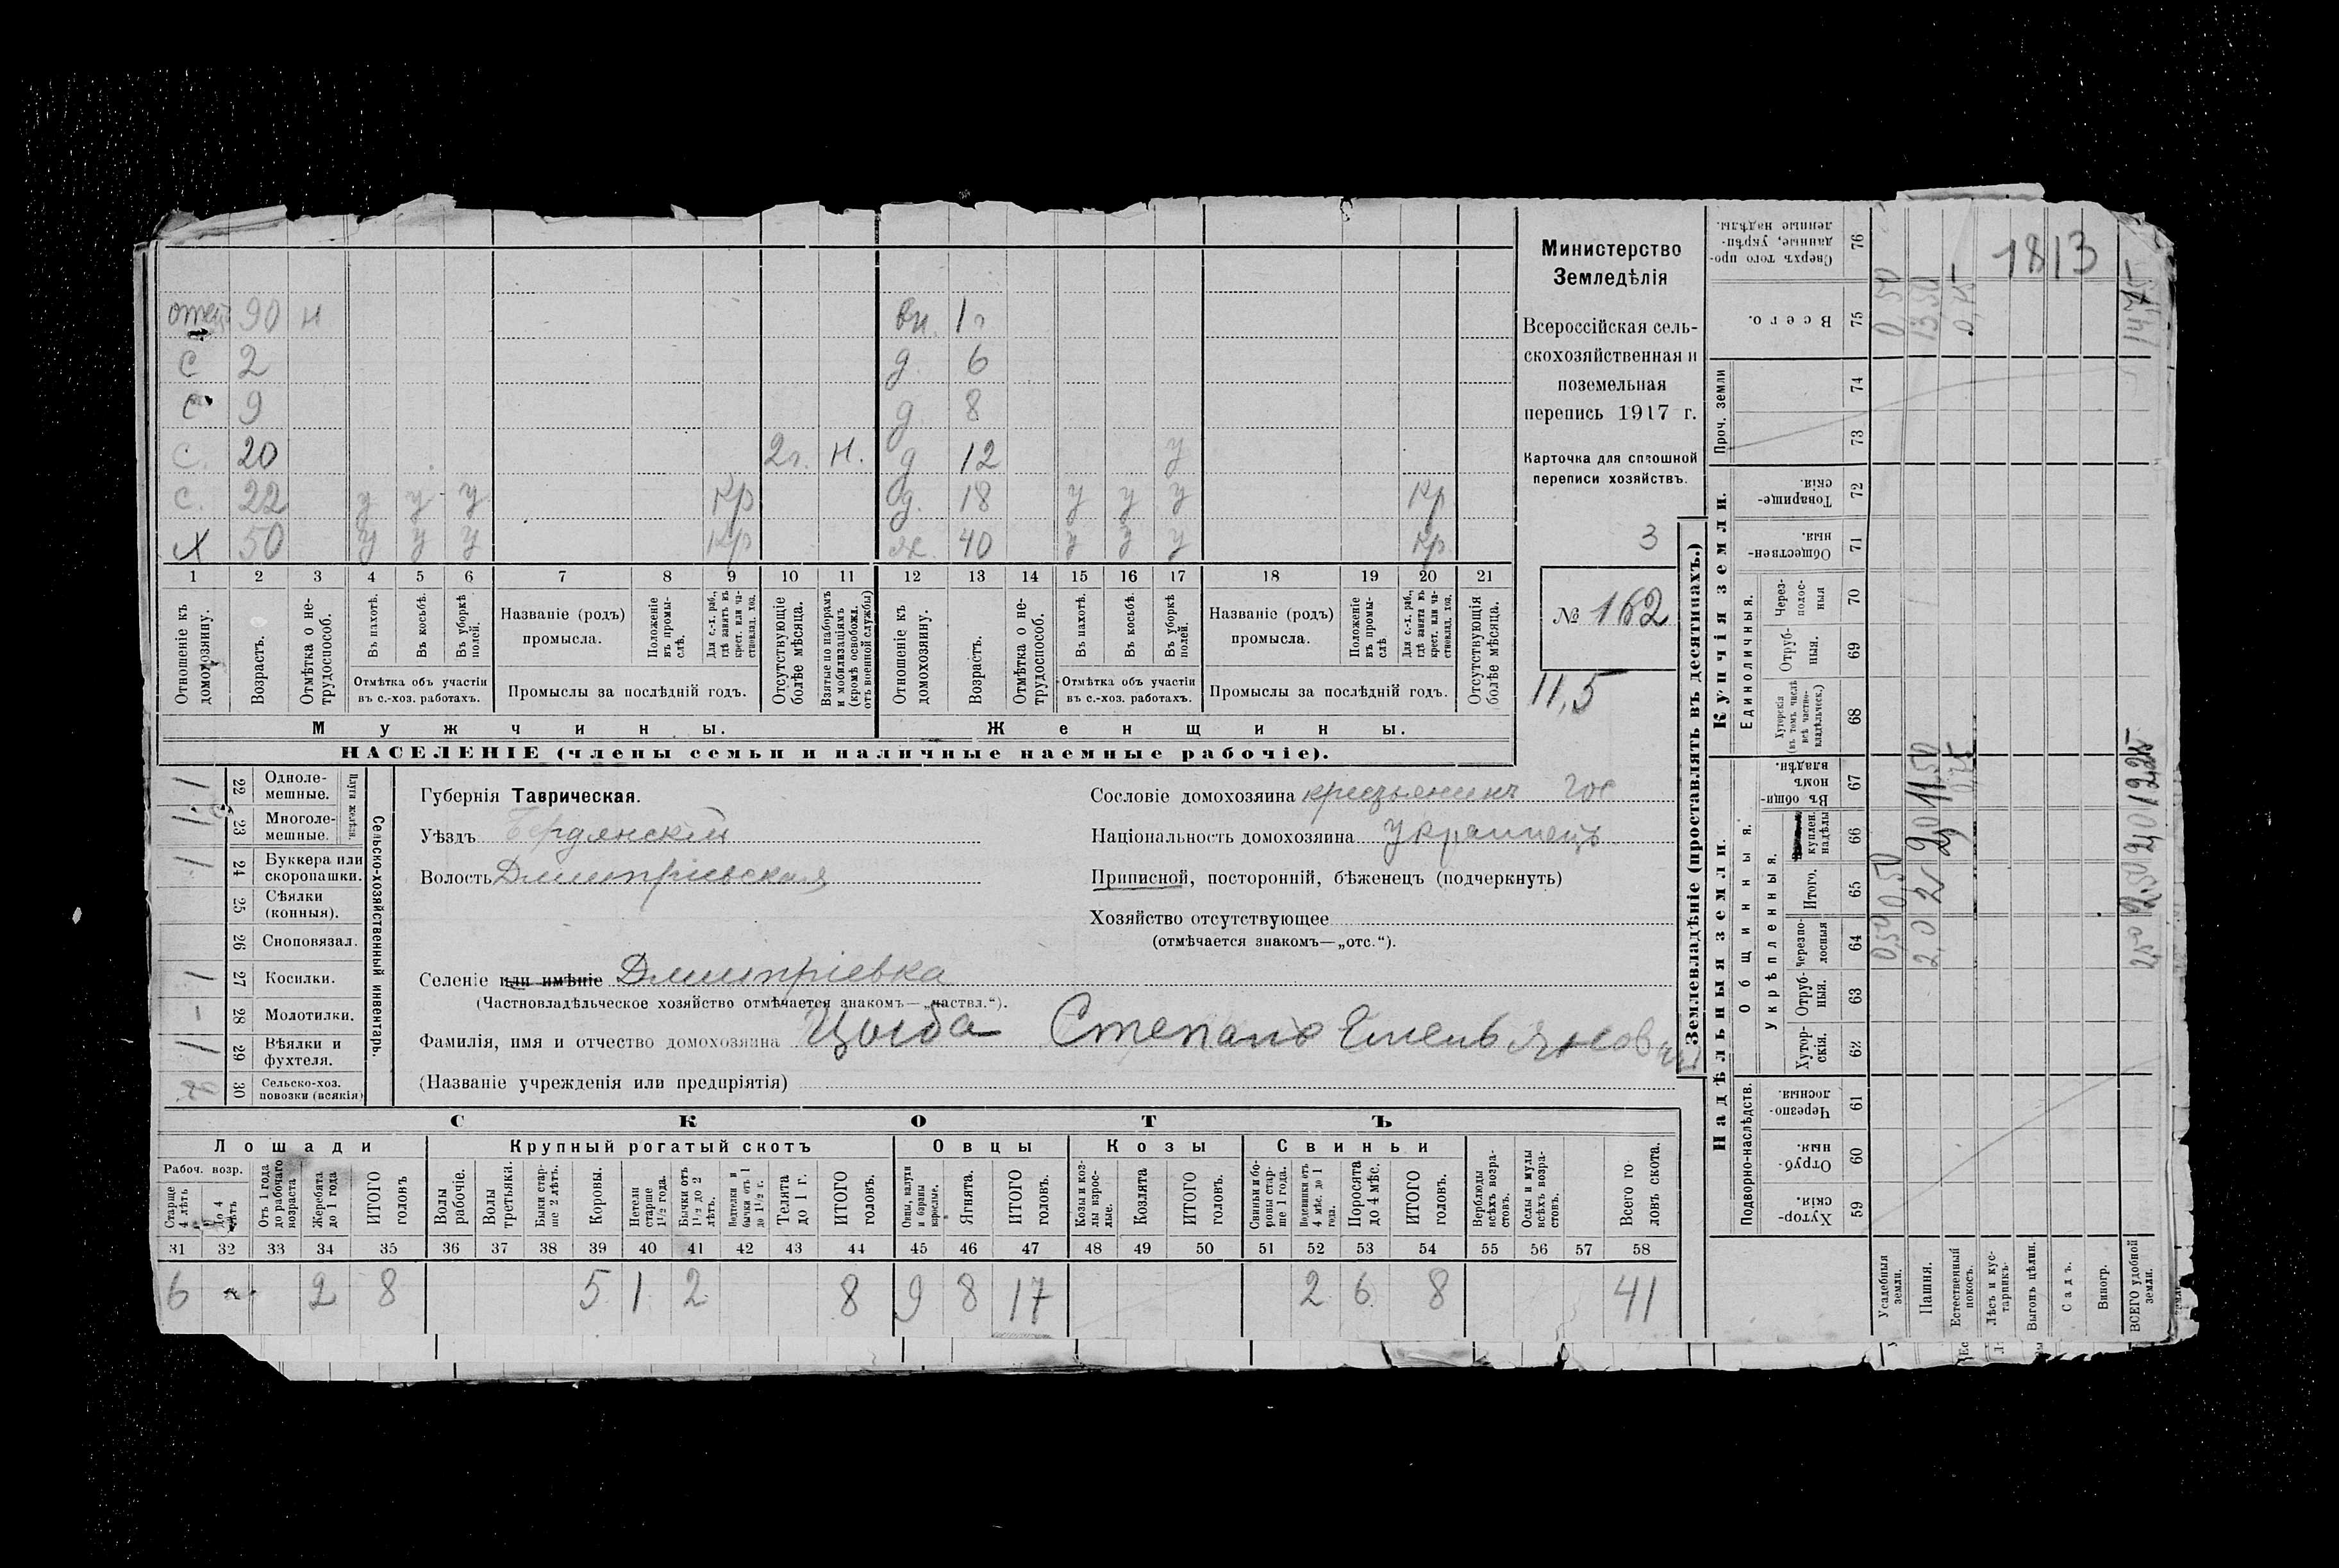 отец 90 н вн. 1 г
с 2 д. 6
с 9 д. 8
с. 20 2 г. н. д 12 у
с. 22 у у у кр д. 18 у у у кр
х 50 у у у кр ж. 40 у у у кр
1 2 3 4 5 6 7 8 9 10 11 12 13 14 15 16 17 18 19 20 21
Отношеніе къ домохозяину.
Возрастъ.
Отмѣтка о не-трудоспособ.
Въ пахотѣ.
Въ косьбѣ.
Въ уборкѣ полей.
Отмѣтка объ участіи
въ с.-хоз. работахъ.
Названіе (родъ)
промысла.
Положеніе въ промы-слѣ.
Для с.-х. раб., гдѣ занятъ въ крест. или ча-стновлад. хоз.
Промыслы за послѣдній годъ.
Отсутствующіе болѣе мѣсяца.
Взятые по наборамъ и мобилизаціямъ (кромѣ освобожд. отъ военной службы)
Отношеніе къ домохозяину.
Возрастъ.
Отмѣтка о не-трудоспособ.
Въ пахотѣ.
Въ косьбѣ.
Въ уборкѣ полей.
Отмѣтка объ участіи
въ с.-хоз. работахъ.
Названіе (родъ)
промысла.
Положеніе въ промы-слѣ
Для с.-х. раб., гдѣ занятъ въ крест. или ча-стновлад. хоз.
Промыслы за послѣдній годъ.
Отсутствующія болѣе мѣсяца.
Мужчины. Женщины.
НАСЕЛЕНІЕ (члены семьи и наличные наемные рабочіе).
Министерство
Земледѣлія
Всероссійская сель-
скохозяйственная и
поземельная
перепись 1917 г.
Карточка для сплошной
переписи хозяйствъ.
3
№ 162
11,5
Сельско-хозяйственный инвентарь.
Плуги желѣзн.
1 22 Одноле-мешные.
1 23 Многоле-мешные.
1 24 Буккера или скоропашки.
25 Сѣялки (конныя).
26 Сноповязал.
1 27 Косилки.
- 28 Молотилки.
1 29 Вѣялки и фухтеля.
30 Сельско-хоз. повозки (всякія)
Губернія Таврическая.
Уѣздъ Бердянскій
Волость Дмитріевская
Сословіе домохозяина крестьянинъ гос
Національность домохозяина украинецъ
Приписной, посторонній, бѣженецъ (подчеркнуть)
Хозяйство отсутствующее
(отмѣчается знакомъ—„отс.“).
Селеніе или имѣніе Дмитріевка
(Частновладѣльческое хозяйство отмѣчается знакомъ—„частвл.“).
Фамилія, имя и отчество домохозяина Цыба Степанъ Емельяновичъ
(Названіе учрежденія или предпріятія)
СКОТЪ
Лошади Крупный рогатый скотъ Овцы Козы Свиньи
Рабоч. возр.
Старше 4 лѣтъ
до 4 лѣтъ
Отъ 1 года до рабочаго возраста
Жеребята до 1 года
ИТОГО головъ
Волы рабочіе.
Волы третьяки.
Быки стар-ше 2 лѣтъ.
Коровы.
Нетели старше 1½ года.
Бычки отъ 1½ до 2 лѣтъ.
Подтелки и бычки отъ 1 до 1½ г.
Телята до 1 г.
ИТОГО головъ.
Овцы, валухи и бараны взрослые.
Ягнята.
ИТОГО головъ.
Козы и коз-лы взрос-лые.
Козлята
ИТОГО головъ.
Свиньи и бо-ровы стар-ше 1 года.
Подсвинки отъ 4 мѣс. до 1 года.
Поросята до 4 мѣс.
ИТОГО головъ.
Верблюды всѣхъ возра-стовъ.
Ослы и мулы всѣхъ возра-стовъ.
Всего го-ловъ скота.
31 32 33 34 35 36 37 38 39 40 41 42 43 44 45 46 47 48 49 50 51 52 53 54 55 56 57 58
6 2 8 5 1 2 8 9 8 17 2 6 8 41
Землевладѣніе (проставлять въ десятинахъ.)
Надѣльныя земли. Купчія земли. Проч. земли
Подворно-наслѣдств. Общинныя. Единоличныя.
Укрѣпленныя.
59 Хутор-скія.
60 Отруб-ныя.
61 Черезпо-лосныя.
62 Хутор-скія.
63 Отруб-ныя.
64 Черезпо-лосныя
65 Итого.
66 куплен. надѣлы
67 Въ общин-номъ владѣн.
68 Хуторскія (въ томъ числѣ всѣ частно-владѣльческ.)
69 Отруб-ныя.
70 Через-полос-ныя
71 Обществен-ныя.
72 Товарище-скія.
73
74
75 Всего.
76 Сверхъ того про-данные, укрѣп-ленные надѣлы.
1813
Усадебныя земли. 0,50 0,50 0,50
Пашня. 2,0 2,0 11,50 13,50
Естественный покосъ. 0,75
Лѣсъ и кус-тарникъ.
Выгонъ цѣлин.
Садъ.
Виногр.
ВСЕГО удобной земли. 2,50 2,50 12,25 14,75